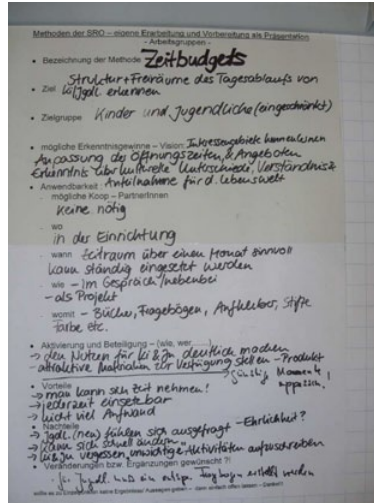 Methoden der SRO – eigene Erarbeitung und Vorbereitung als Präsentation
- Arbeitsgruppen -
• Bezeichnung der Methode Zeitbudgets
Struktur + Freiräume des Tagesablaufs von
• Ziel Ki/Jgdl. erkennen
• Zielgruppe Kinder und Jugendliche (eingeschränkt)
• mögliche Erkenntnisgewinne – Vision: Interessengebiete kennenlernen
Anpassung der Öffnungszeiten, & Angeboten
Erkenntnis über kulturelle Unterschiede, Verständnis &
• Anwendbarkeit: Anteilnahme für d. Lebenswelt
- mögliche Koop – PartnerInnen
keine nötig
- wo
in der Einrichtung
- wann Zeitraum über einen Monat sinnvoll
kann ständig eingesetzt werden
- wie – im Gespräch/nebenbei
– als Projekt
- womit – Bücher, Fragebögen, Aufkleber, Stifte
Farbe etc.
• Aktivierung und Beteiligung – (wie, wer......)
→ den Nutzen für Ki & Ju deutlich machen
→ attraktive Materialien zur Verfügung stellen – Produkt
→ günstig Momente
• Vorteile
→ man kann sich Zeit nehmen!
→ jederzeit einsetzbar
→ nicht viel Aufwand
• Nachteile
→ Jgdl. (neu) fühlen sich ausgefragt – Ehrlichkeit?
→ kann sich schnell ändern
→ Ki & Ju vergessen, unwichtige Aktivitäten aufzuschreiben
• Veränderungen bzw. Ergänzungen gewünscht ?!
- für Jugendl. muss ein entspr. Fragebogen erstellt werden